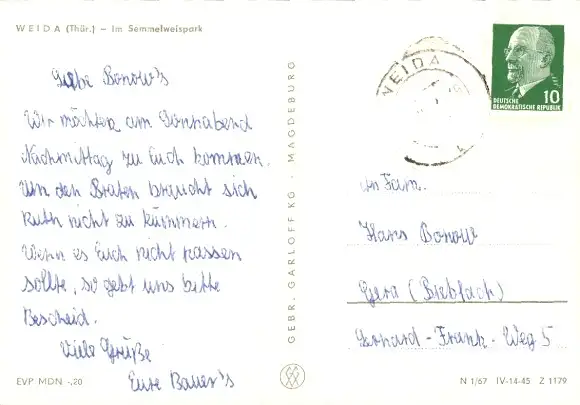 WEIDA (Thür.) – Im Semmelweispark
Liebe Bonow's
Wir möchten am Sonnabend
Nachmittag zu Euch kommen.
Um den Braten braucht sich
Ruth nicht zu kümmern.
Wenn es Euch nicht passen
sollte, so gebt uns bitte
Bescheid.
Viele Grüße
Eure Bauer's
EVP MDN -,20
GEBR. GARLOFF KG · MAGDEBURG
WEIDA
10
DEUTSCHE
DEMOKRATISCHE REPUBLIK
An Fam.
Hans Bonow
Gera (Bieblach)
Gerhard-Frank-Weg 5
N 1/67 IV-14-45 Z 1179